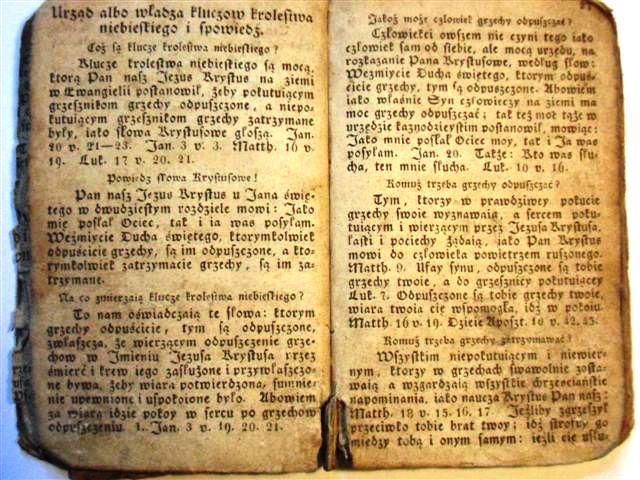 Urząd albo władza kluczow krolestwa
niebieskiego i spowiedź.
Coż są klucze krolestwa niebieskiego?
Klucze krolestwa niebieskiego są moc,
ktorą Pan nasz Jezus Krystus na ziemi
w Ewangielii postanowił, żeby pokutującym
grzesznikom grzechy odpuszczone, a niepo-
kutującym grzesznikom grzechy zatrzymane
były, iako słowa Krystusowe głoszą. Jan.
20 v. 21—23. Jan. 3 v. 3. Matth. 16 v.
19. Luk. 17 v. 20. 21.
Powiedz słowa Krystusowe!
Pan nasz Jezus Krystus u Jana świę-
tego w dwudziestym rozdziele mowi: Jako
mię posłał Ociec, tak i ia was posyłam.
Weźmiycie Ducha świętego, ktorymkolwiek
odpuścicie grzechy, są im odpuszczone, a kto-
rymkolwiek zatrzymacie grzechy, są im za-
trzymane.
Na co zmierzaią klucze krolestwa niebieskiego?
To nam oświadczaią te słowa: ktorym
grzechy odpuścicie, tym są odpuszczone,
zwłaszcza, że wierzącym odpuszczenie grze-
chow w Imieniu Jezusa Krystusa przez
śmierć i krew iego zasłużone i przywłaszczo-
ne bywa, żeby wiara potwierdzona, sumnie-
nie upewnione i uspokoione było. Abowiem
za wiarą idzie pokoy w sercu po grzechow
odpuszczeniu. 1. Jan. 3 v. 19. 20. 21.
Jakoż może człowiek grzechy odpuszczać?
Człowiekci owszem nie czyni tego iako
człowiek sam od siebie, ale mocą urzędu, na
rozkazanie Pana Krystusowe, według słow:
Weźmiycie Ducha świętego, ktorym odpuś-
cicie grzechy, tym są odpuszczone. Abowiem
iako właśnie Syn człowieczy na ziemi ma
moc grzechy odpuszczać; tak też moc tąże w
urzędzie kaznodzieyskim postanowił, mowiąc:
Jako mnie posłał Ociec moy, tak i Ja was
posyłam. Jan. 20. Także: Kto was słu-
cha, ten mnie słucha. Luk. 10 v. 16.
Komuż trzeba grzechy odpuszczać?
Tym, ktorzy w prawdziwey pokucie
grzechy swoie wyznawaią, a sercem poku-
tuiącym i wierzącym przez Jezusa Krystusa,
łaski i pociechy żądaią, iako Pan Krystus
mowi do człowieka powietrzem ruszonego.
Matth. 9. Ufay synu, odpuszczone są tobie
grzechy twoie, a do grzesznicy pokutuiącey
Luk. 7. Odpuszczone są tobie grzechy twoie,
wiara twoia cię wspomogła, idź w pokoiu.
Matth. 16 v. 19. Dzieie Aposzt. 10 v. 42. 43.
Komuż trzeba grzechy zatrzymawać?
Wszystkim niepokutuiącym i niewier-
nym, ktorzy w grzechach swawolnie zosta-
waią a wzgardzaią wszystkie chrześciańskie
napominania, iako naucza Krystus Pan nasz:
Matth. 18 v. 15. 16. 17. Jeżliby zgrzeszył
przeciwko tobie brat twoy; idź strofuy go
między tobą i onym samym: ieżli cię usłu-